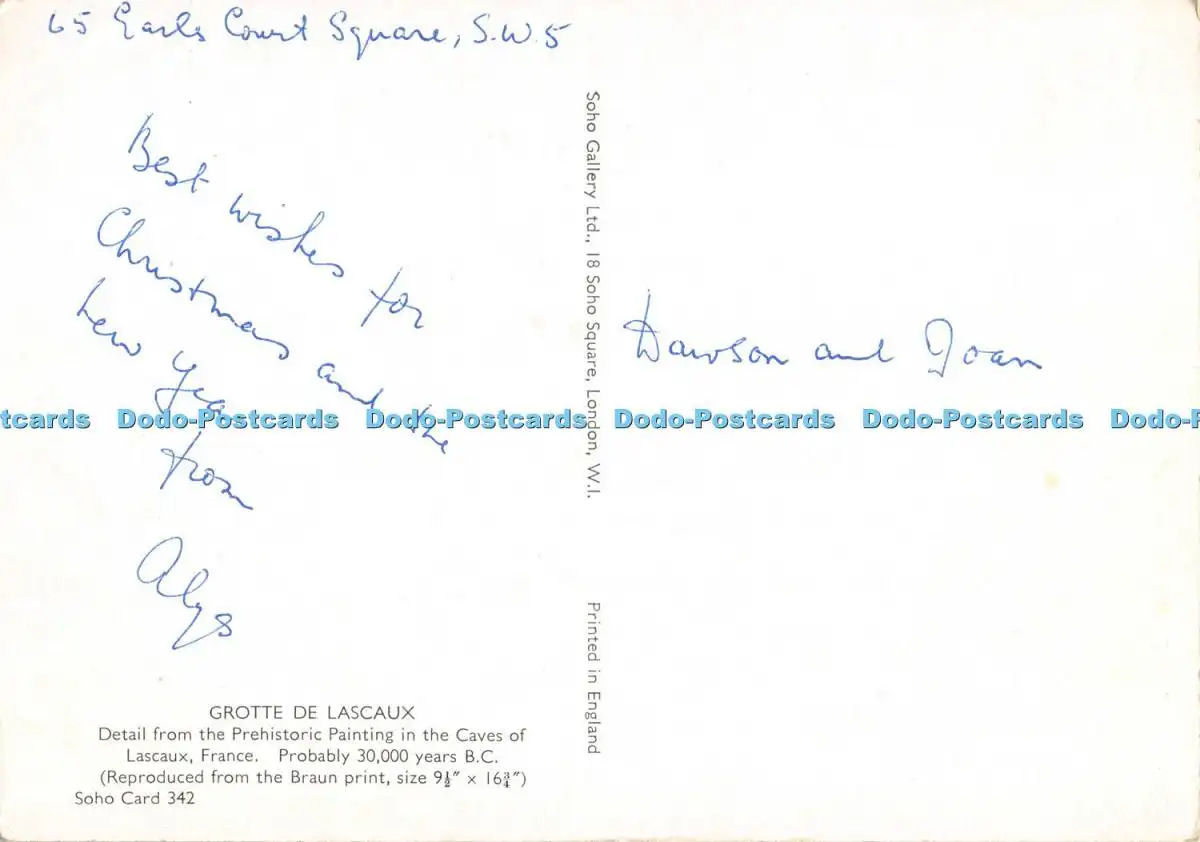 65 Earls Court Square, S.W.5
Best wishes for
Christmas and the
New Year
from
Alys
Dawson and Joan
Soho Gallery Ltd., 18 Soho Square, London, W.1.
Printed in England
tcards Dodo-Postcards Dodo-Postcards Dodo-Postcards Dodo-Postcards Dodo-P
GROTTE DE LASCAUX
Detail from the Prehistoric Painting in the Caves of
Lascaux, France. Probably 30,000 years B.C.
(Reproduced from the Braun print, size 9½″ x 16¾″)
Soho Card 342